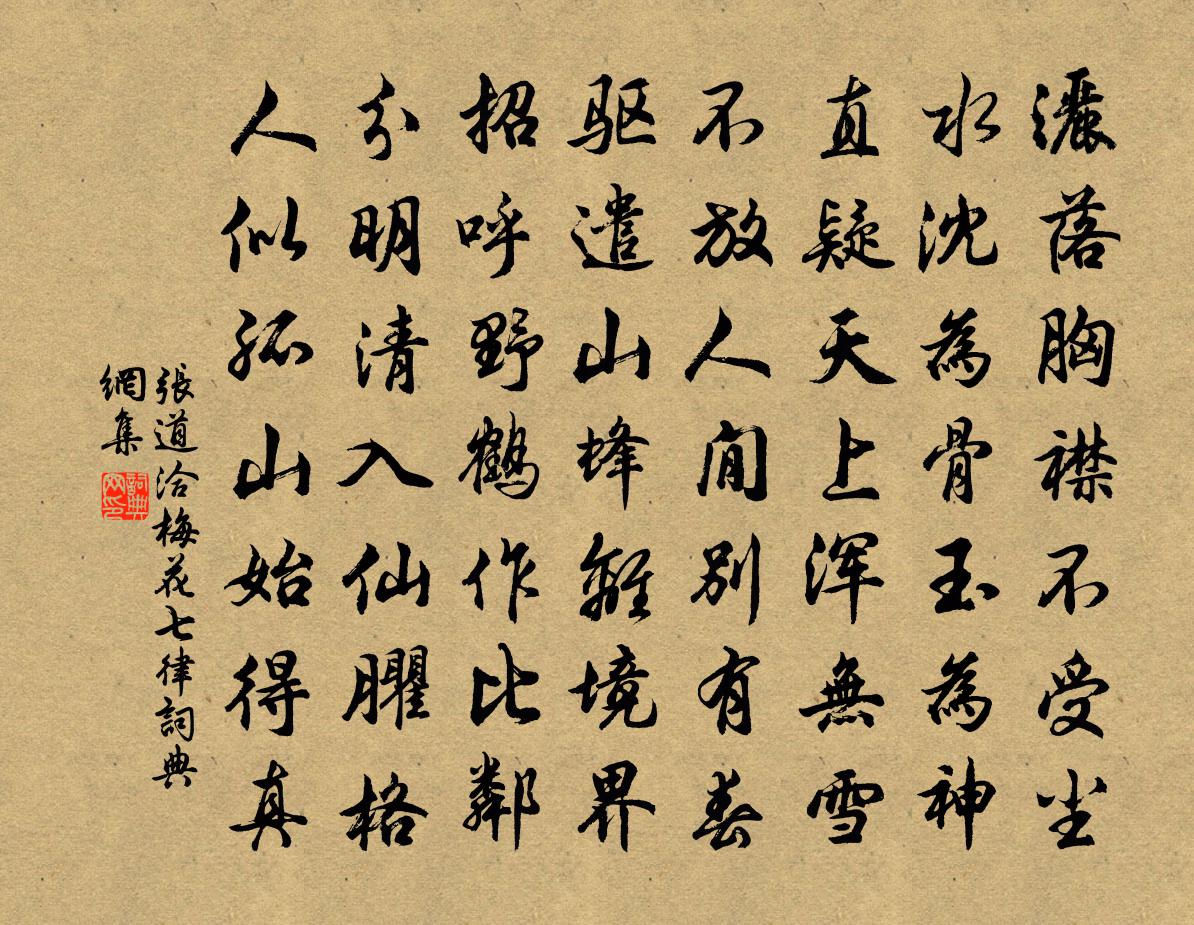 灑落胸襟不受尘
水沈為骨玉為神
直疑天上浑無雪
不放人间别有春
驱遣山蜂離境界
招呼野鹤作比鄰
分明清入仙臞格
人似孤山始得真
張道洽梅花七律詞典
網集
詞典
网印